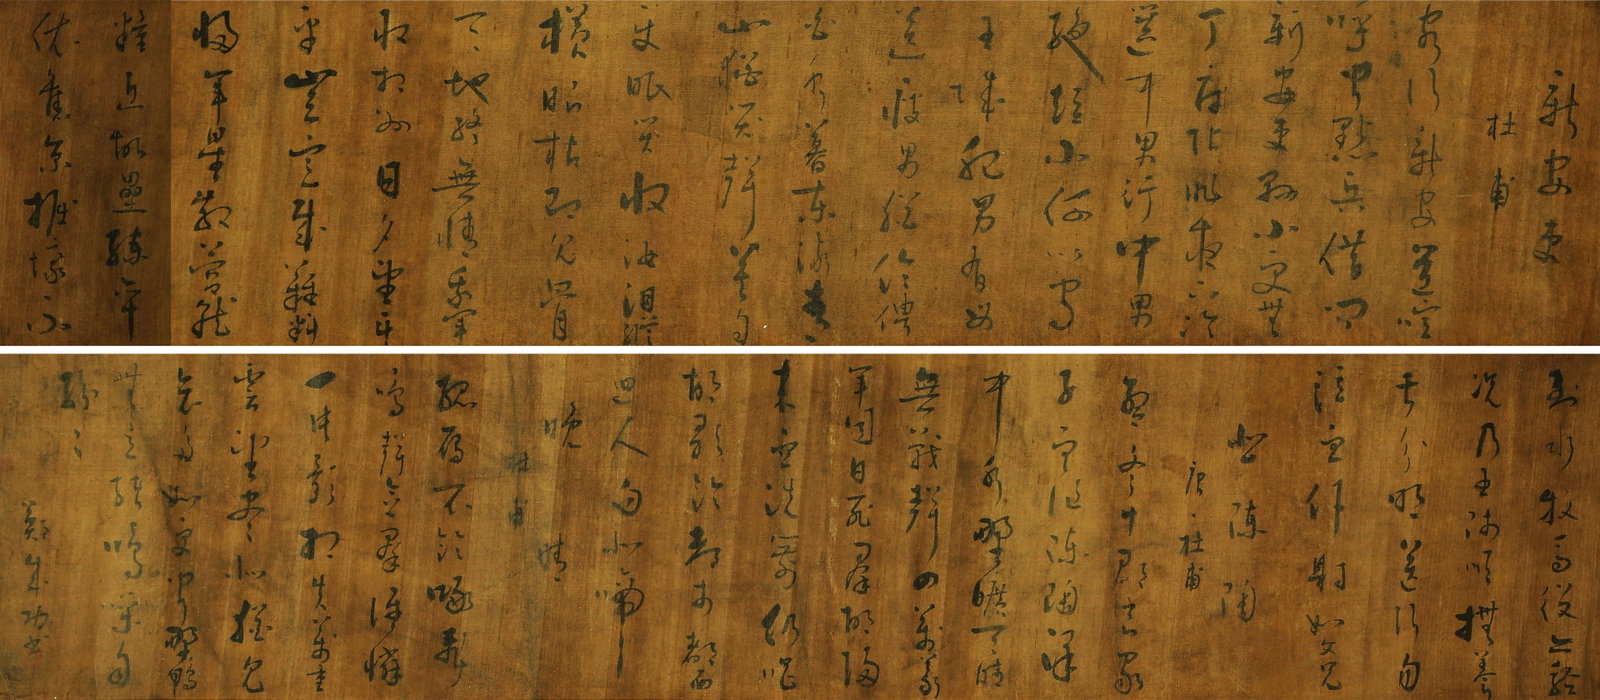 新安吏
杜甫
客行新安道喧
呼聞點兵借問
新安吏縣小更無
丁府帖昨夜下次
選中男行中男
絕短小何以守
王城肥男有母
送瘦男獨伶俜
白水暮東流青
山猶哭聲莫自
使眼哭收汝淚縱
橫眼枯即見骨
天地終無情我軍
收相州日夕望其
平豈意賊難料
歸軍星散營就
糧近故壘練卒
依舊京掘壕不
到水牧馬役亦輕
況乃王師順撫養
甚分明送行勿
泣血僕射如父兄
悲陳陶
唐杜甫
孟冬十郡良家
子血作陳陶澤
中水野曠天晴
無戰聲四萬義
軍同日死群胡歸
來血洗箭仍唱
胡歌飲都市都
人向北啼
晚晴
杜甫
孤雁不飲啄飛
鳴聲念群誰憐
一片影相失萬重
雲望盡似猶見
哀多如更聞野鴨
無意緒鳴噪自
紛〻
鄭成功書